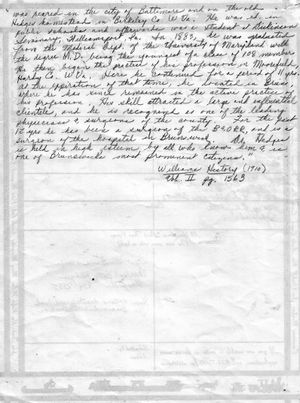 was reared in the city of Baltimore and on the old
Hedges homestead in Berkeley Co W.Va. He was ed. in
public schools and afterwards was a student at Dickinson
Seminary, Williamsport, Pa. In 1889, he was graduated
from the Medical Dept. of the University of Maryland with
the degree M.D. being the youngest of a class of 108 members
He then began the practice of his profession in Moorefield,
Hardy Co. W.Va. Here he continued for a period of 11 years
at the expiration of that time, he located in Bruns.,
where he has since remained in the active practice of
his profession. His skill attracted a large and influential
clientele, and he is recognized as one of the leading
physicians & surgeons of the county. For the past
12 yrs he has been a surgeon of the B&O RR, and is a
surgeon of the hospital in Brunswick. Dr. Hedges
is held in high esteem by all who know him & is
one of Brunswicks most prominent citizens."
Williams History (1910)
Vol. II pg. 1563